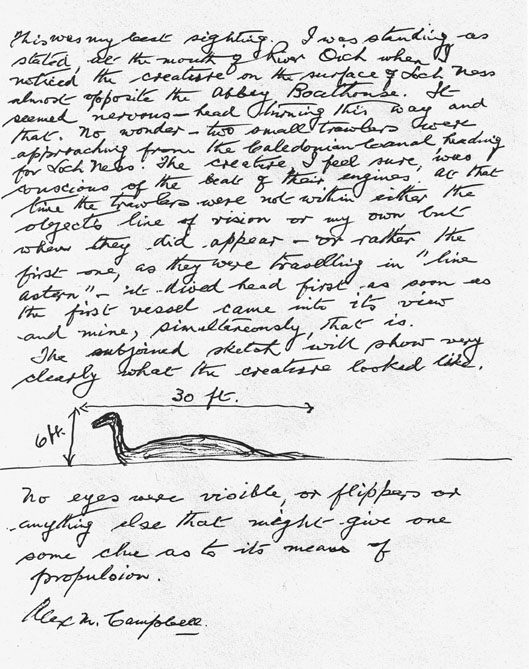 This was my best sighting. I was standing as
stated, at the mouth of River Oich when I
noticed the creature on the surface of Loch Ness
almost opposite the Abbey Boathouse. It
seemed nervous — head turning this way and
that. No wonder — two small trawlers were
approaching from the Caledonian Canal heading
for Loch Ness. The creature, I feel sure, was
conscious of the beat of their engines. At that
time the trawlers were not within either the
objects line of vision or my own but
when they did appear — or rather the
first one, as they were travelling in "line
astern" — it dived head first as soon as
the first vessel came into its view
and mine, simultaneously, that is.
The subjoined sketch will show very
clearly what the creature looked like.
30 ft.
6 ft.
No eyes were visible, or flippers or
anything else that might give one
some clue as to its means of
propulsion.
Alex M. Campbell.